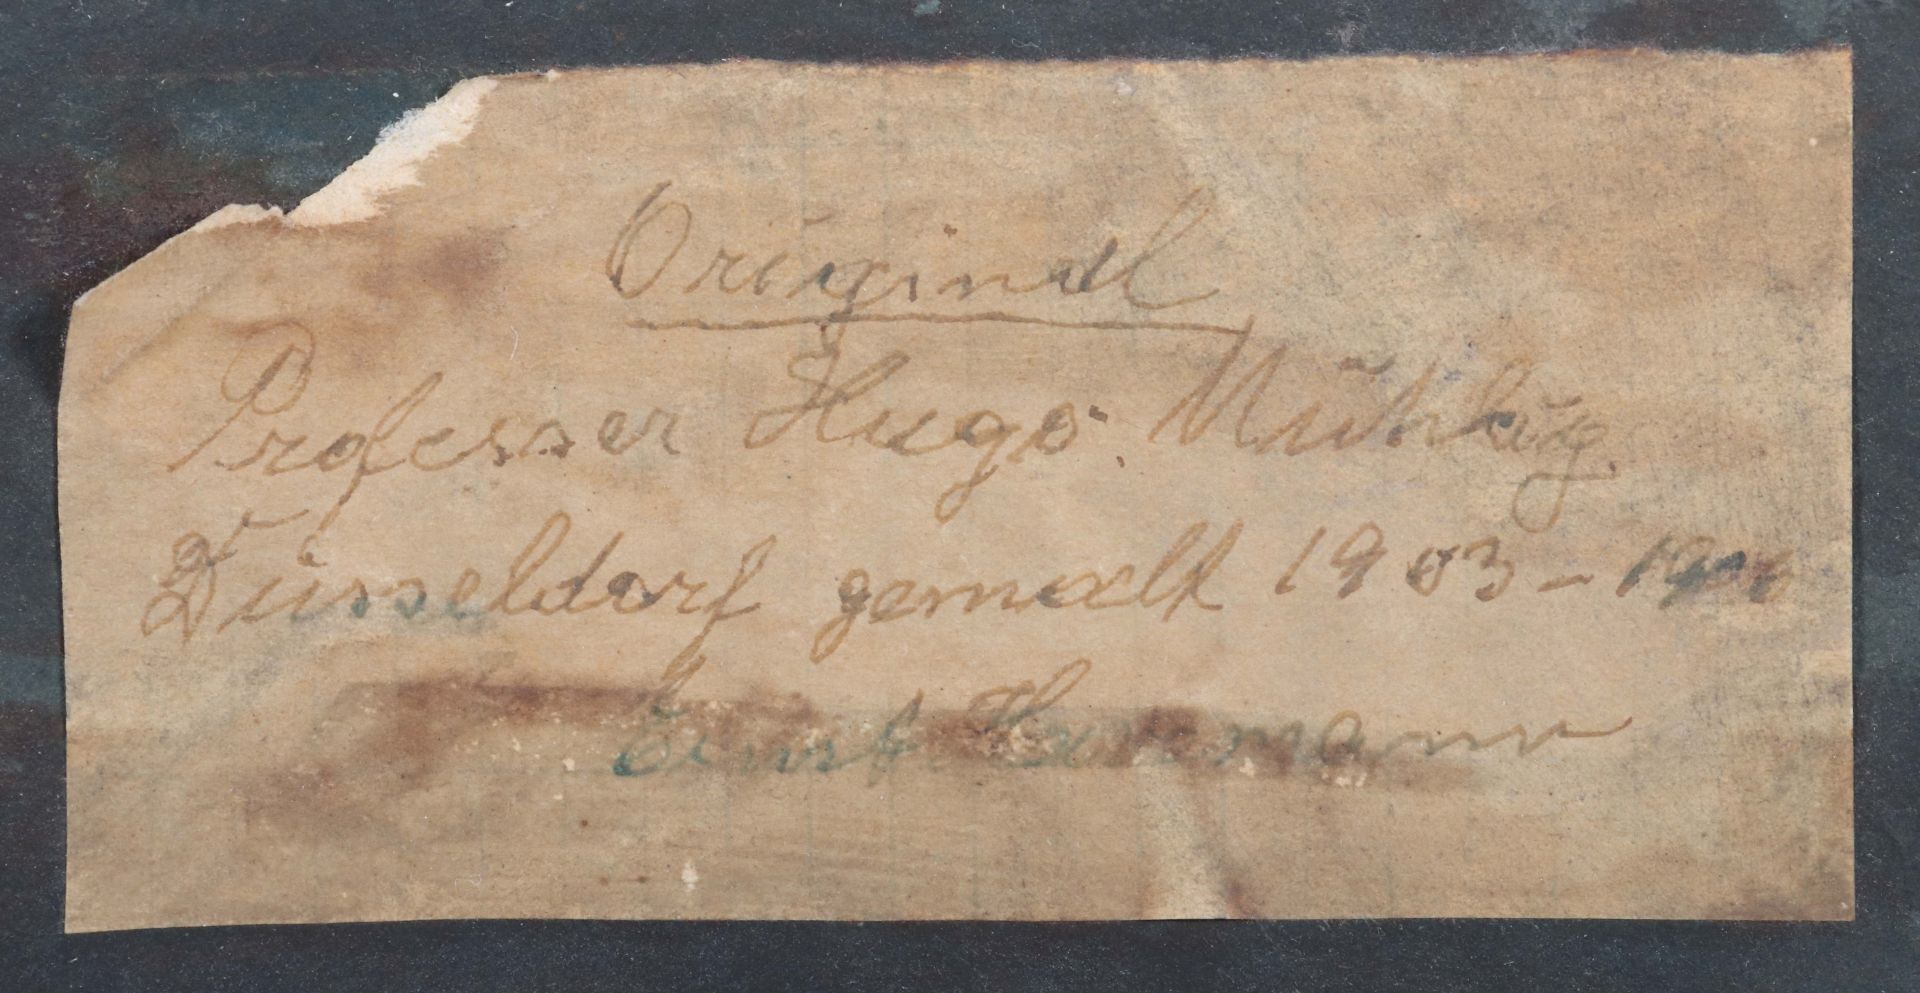 Original
Professer Hugo Mühlig
Düsseldorf gemalt 1903 –
Ernst